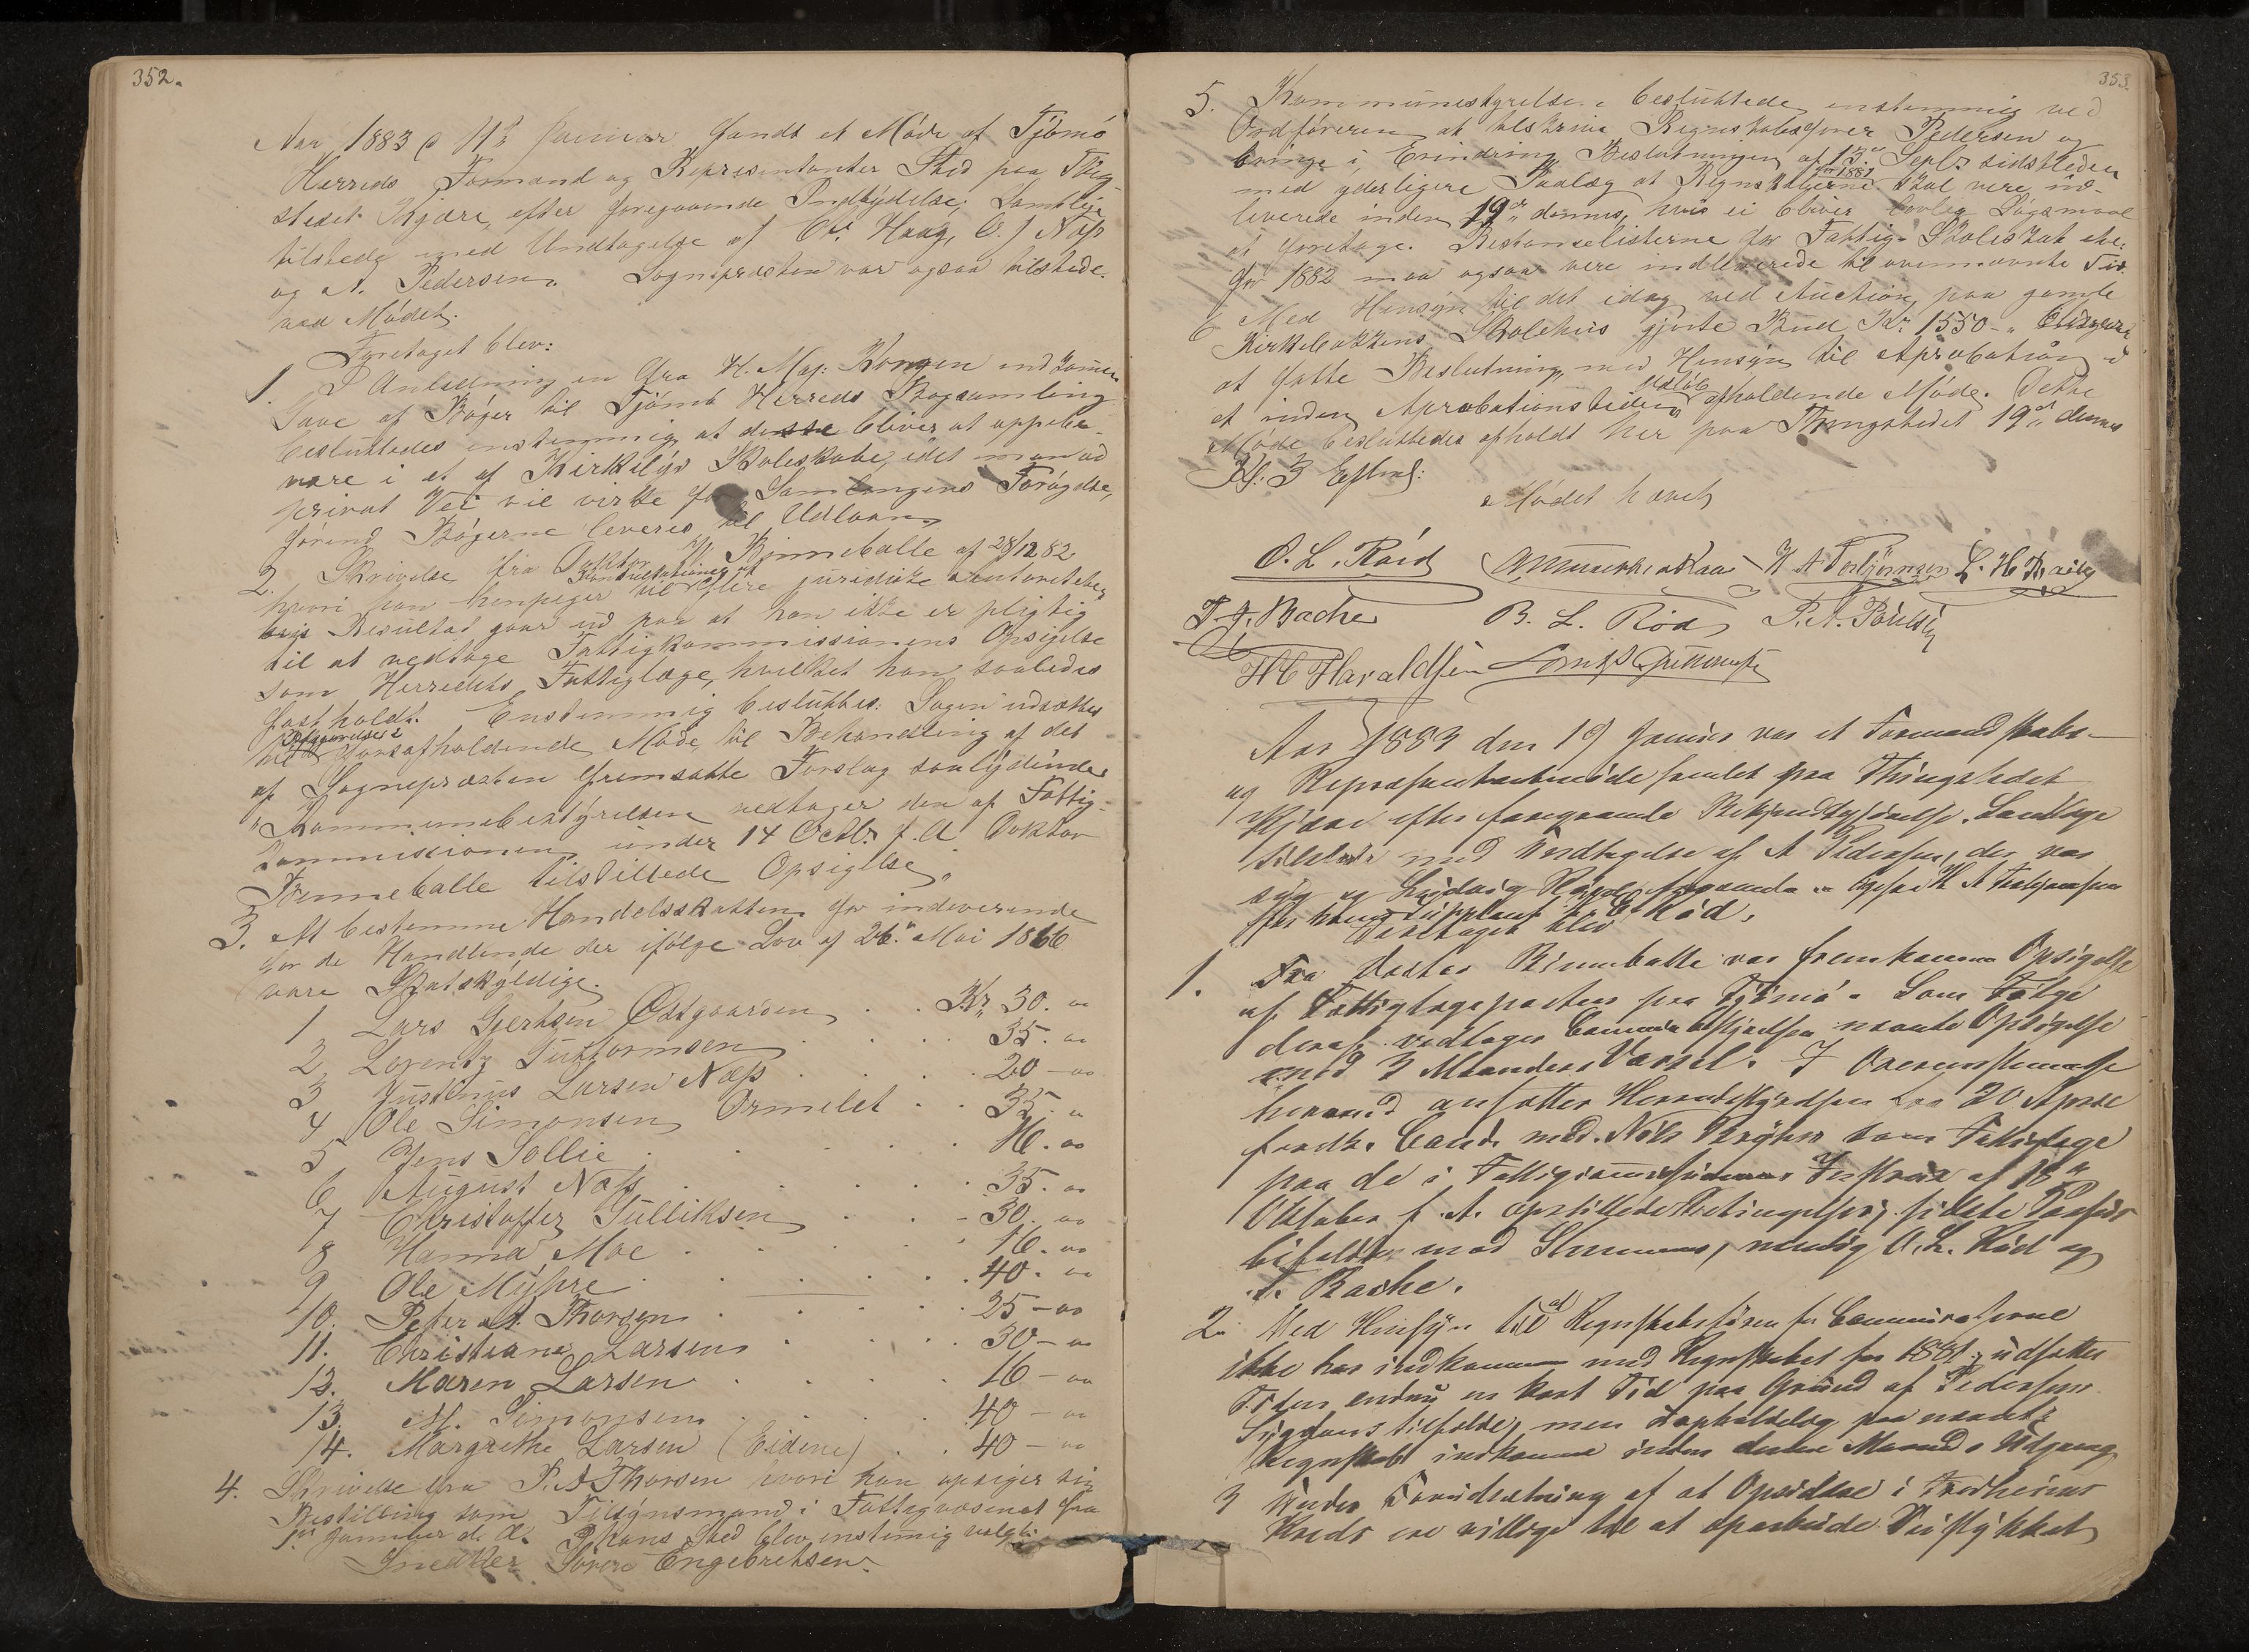 352.
Aar 1883 d 11te Januar fandt et Möde af Tjömö
Herreds Formand og Representanter Sted paa Thing-
stedet Kjære, efter foregaaende Indbydelse; Samtlige
tilstede med Undtagelse af Chr. Haag, O. J Næss
og A. Pedersen. Sognepræsten var ogsaa tilstede
ved Mödet.
Foretaget blev:
1. I Anledning en fra H. Maj: Kongen indkommen
Gave af Böger til Tjömö Herreds Bogsamling
besluttedes enstemmig at desse bliver at oppeba-
vare i et af Kirkelös Skoleskabe, idet man ad
privat Vei vil virke for Samlingens Forögelse,
förend Bögerne leveres til Udlaan.
2. Skrivelse fra Doktor Binneballe af 28/12 82
hvori han henpeger til Konsultationer af flere juridiske Autoriteter
hvis Resultat gaar ud paa at han ikke er pligtig
til at vedtage Fattigkommissionens Opsigelse
som Herredets Fattiglæge, hvilket han saaledes
fastholdt. Enstemmig besluttes: Sagen udsættes
til Afgjørelse i afholdende Möde, til Behandling af det
af Sognepræsten fremsatte Forslag saalydende
"Kommunebestyrelsen vedtager den af Fattig-
kommissionen under 14 Octbr. f. A. Doktor
Binneballe tilstillede Opsigelse"
3. At bestemme Handelsskatten for indeværende
for de Handlende der ifölge Lov af 26de Mai 1866
vare Skatskyldige.
1 Lars Gjertsen Østgaarden . . Kr. 30. "
2 Lorentz Guttormsen . . . 35. "
3 Justinus Larsen Næss . . . 20 - "
4 Ole Simonsen Ormelet . . 35. "
5 Jens Sollie . . . 16. "
6 August Næss . . . 35. "
7 Christoffer Tulliksen . . - 30. "
8 Hanna Moe . . . 16. "
9 Ole Myhre . . . 40. "
10. Peter A. Thorsen . . . 25 - "
11. Christiane Larsen . . . 30 - "
12. Maren Larsen . . . 16 - "
13. M. Simonsen . . . 40 - "
14. Margrethe Larsen (Eidene) . . 40 - "
4. Skrivelse fra P. A Thorsen hvori han opsiger sin
Bestilling som Tilsynsmand i Fattigvæsenet fra
1ste Januar d. A. I hans Sted blev enstemig valgt:
Snedker Sören Engebretsen.
353.
5. Kommunestyrelsen besluttede enstemmig ved
Ordföreren at tilskrive Regnskabsförer Pedersen og
bringe i Erindring Beslutningen af 13de Septr. sidstleden
med yderligere Paalæg at Regnskaberne for 1881 skal være ind-
leverede inden 19de dennes, hvis ei bliver lovlig Sögsmaal
at foretage. Restanselisterne for Fattig- Skoleskat etc.
for 1882 maa ogsaa være indleverede til ovennævnte Tid.
6 Med Hensyn til det idag ved Auction paa gamle
Kirkebakkens Skolehus gjorte Bud Kr. 1550 - "
at fatte Beslutning, med Hensyn til Aprobation i
et inden Aprobationstidens Udlöb afholdende Möde. Dette
Möde besluttedes afholdt her paa Thingstedet 19de dennes
Kl. 3 Efterm:
Mödet hævet
O. L. Röed H A Torbjörnsen L. H
T. J. Bache B. L. Röd P. A. Poulsen
H C Haraldsen Lorentz Guttormsen
Aar 1883 den 19 Januar var et Formandskabs-
og Repræsentantmöde samlet paa Thingstedet
Kjære efter foregaaende Bekjendtgjörelse. Samtlige
tilstede med Undtagelse af A Pedersen, der var
syg og Ludvig H A Torbjörnsen
for hans Supleant B L Röd.
Foretaget blev
1. Fra Doctor Binneballe var fremkommen Opsigelse
af Fattiglægeposten paa Tjömö. Som Fölge
deraf vedtager Communebestyrelsen nævnte Opsigelse
med 3 Maaneders Varsel. I Overensstemmelse
hermed ansætter Herredsstyrelsen fra 20 April
førstk. Cand. med. Nils som Fattiglæge
paa de i Fattigcommissionens Skrivelse af 18de
Oktober f. A. opstillede Betingelser; sidste Passus
bifaldt mod Stemmer, nemlig O. L. Röd og
T. Bache.
2. Med Hensyn til at Regnskabsføreren for Communekasserne
ikke har indkommet med Regnskabet for 1881, udsættes
Tiden endnu en kort Tid paa Grund af Pedersens
Sygdomstilfælde, men opholdelig paa nævnte
Regnskab indkomne inden denne Maaneds Udgang
3 Under Forudsætning af at Opsiddere i Fredheims
Kreds ere villige til at oparbeide Veistykket